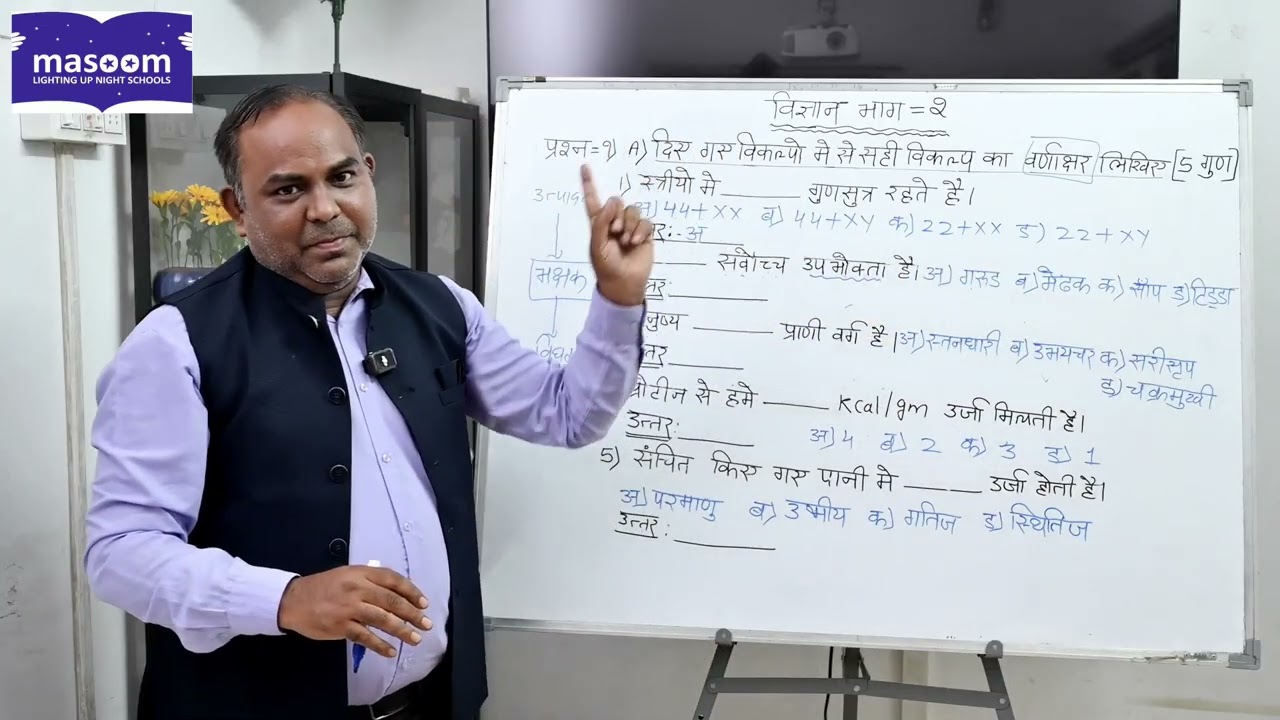 masoom
LIGHTING UP NIGHT SCHOOLS
विज्ञान भाग = २
प्रश्न=१) A) दिए गए विकल्पो मे से सही विकल्प का वर्णाक्षर लिखिए [5 गुण]
1) स्त्रीयो मे ______ गुणसुत्र रहते है।
अ) 44+XX ब) 44+XY क) 22+XX ड) 22+XY
र:- अ
______ सर्वोच्च उपभोक्ता है। अ) गरुड ब) मेढक क) साप ड) टिड्डा
तर: ______
नुष्य ______ प्राणी वर्ग है। अ) स्तनधारी ब) उभयचर क) सरीसृप
ड) चक्रमुखी
तर ______
प्रोटीन से हमे ______ Kcal/gm उर्जा मिलती है।
अ) 4 ब) 2 क) 3 ड) 1
उत्तर: ______
5) संचित किए गए पानी मे ______ उर्जा होती है।
अ) परमाणु ब) उष्मीय क) गतिज ड) स्थितिज
उत्तर: ______
उत्पाद
भक्षक
विघ